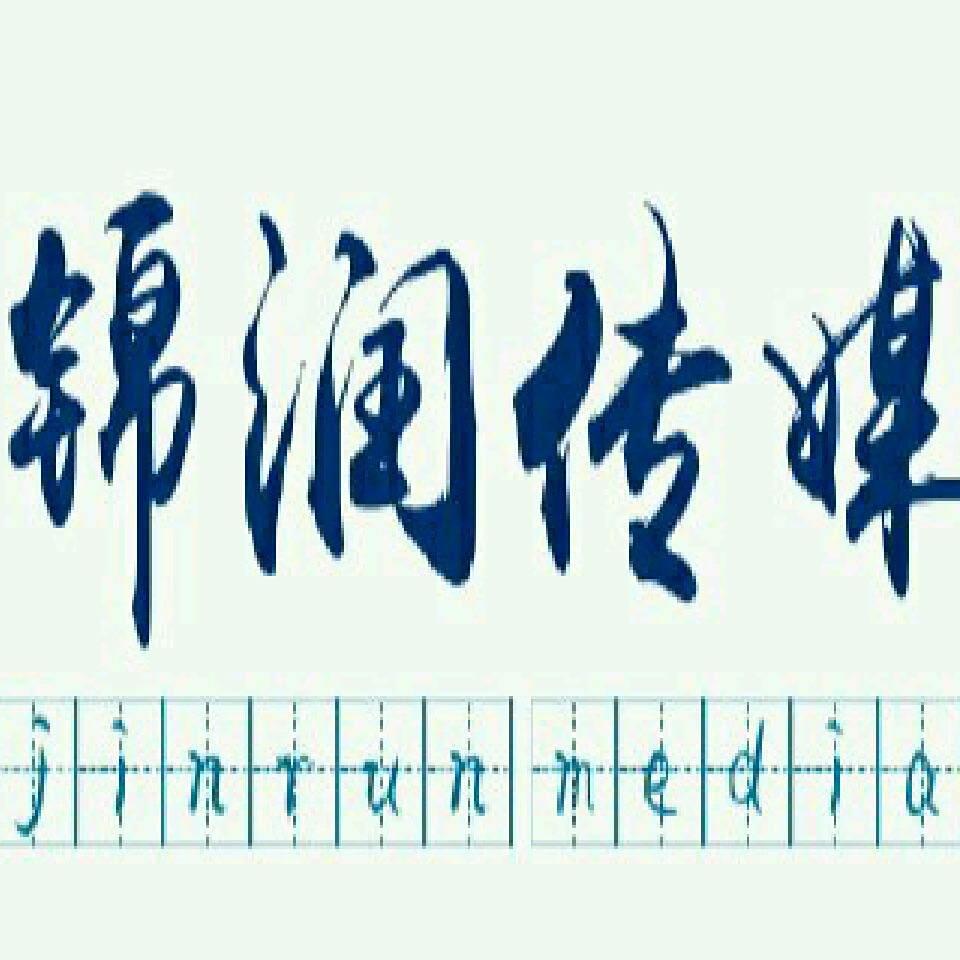 锦润传媒
jinrun media